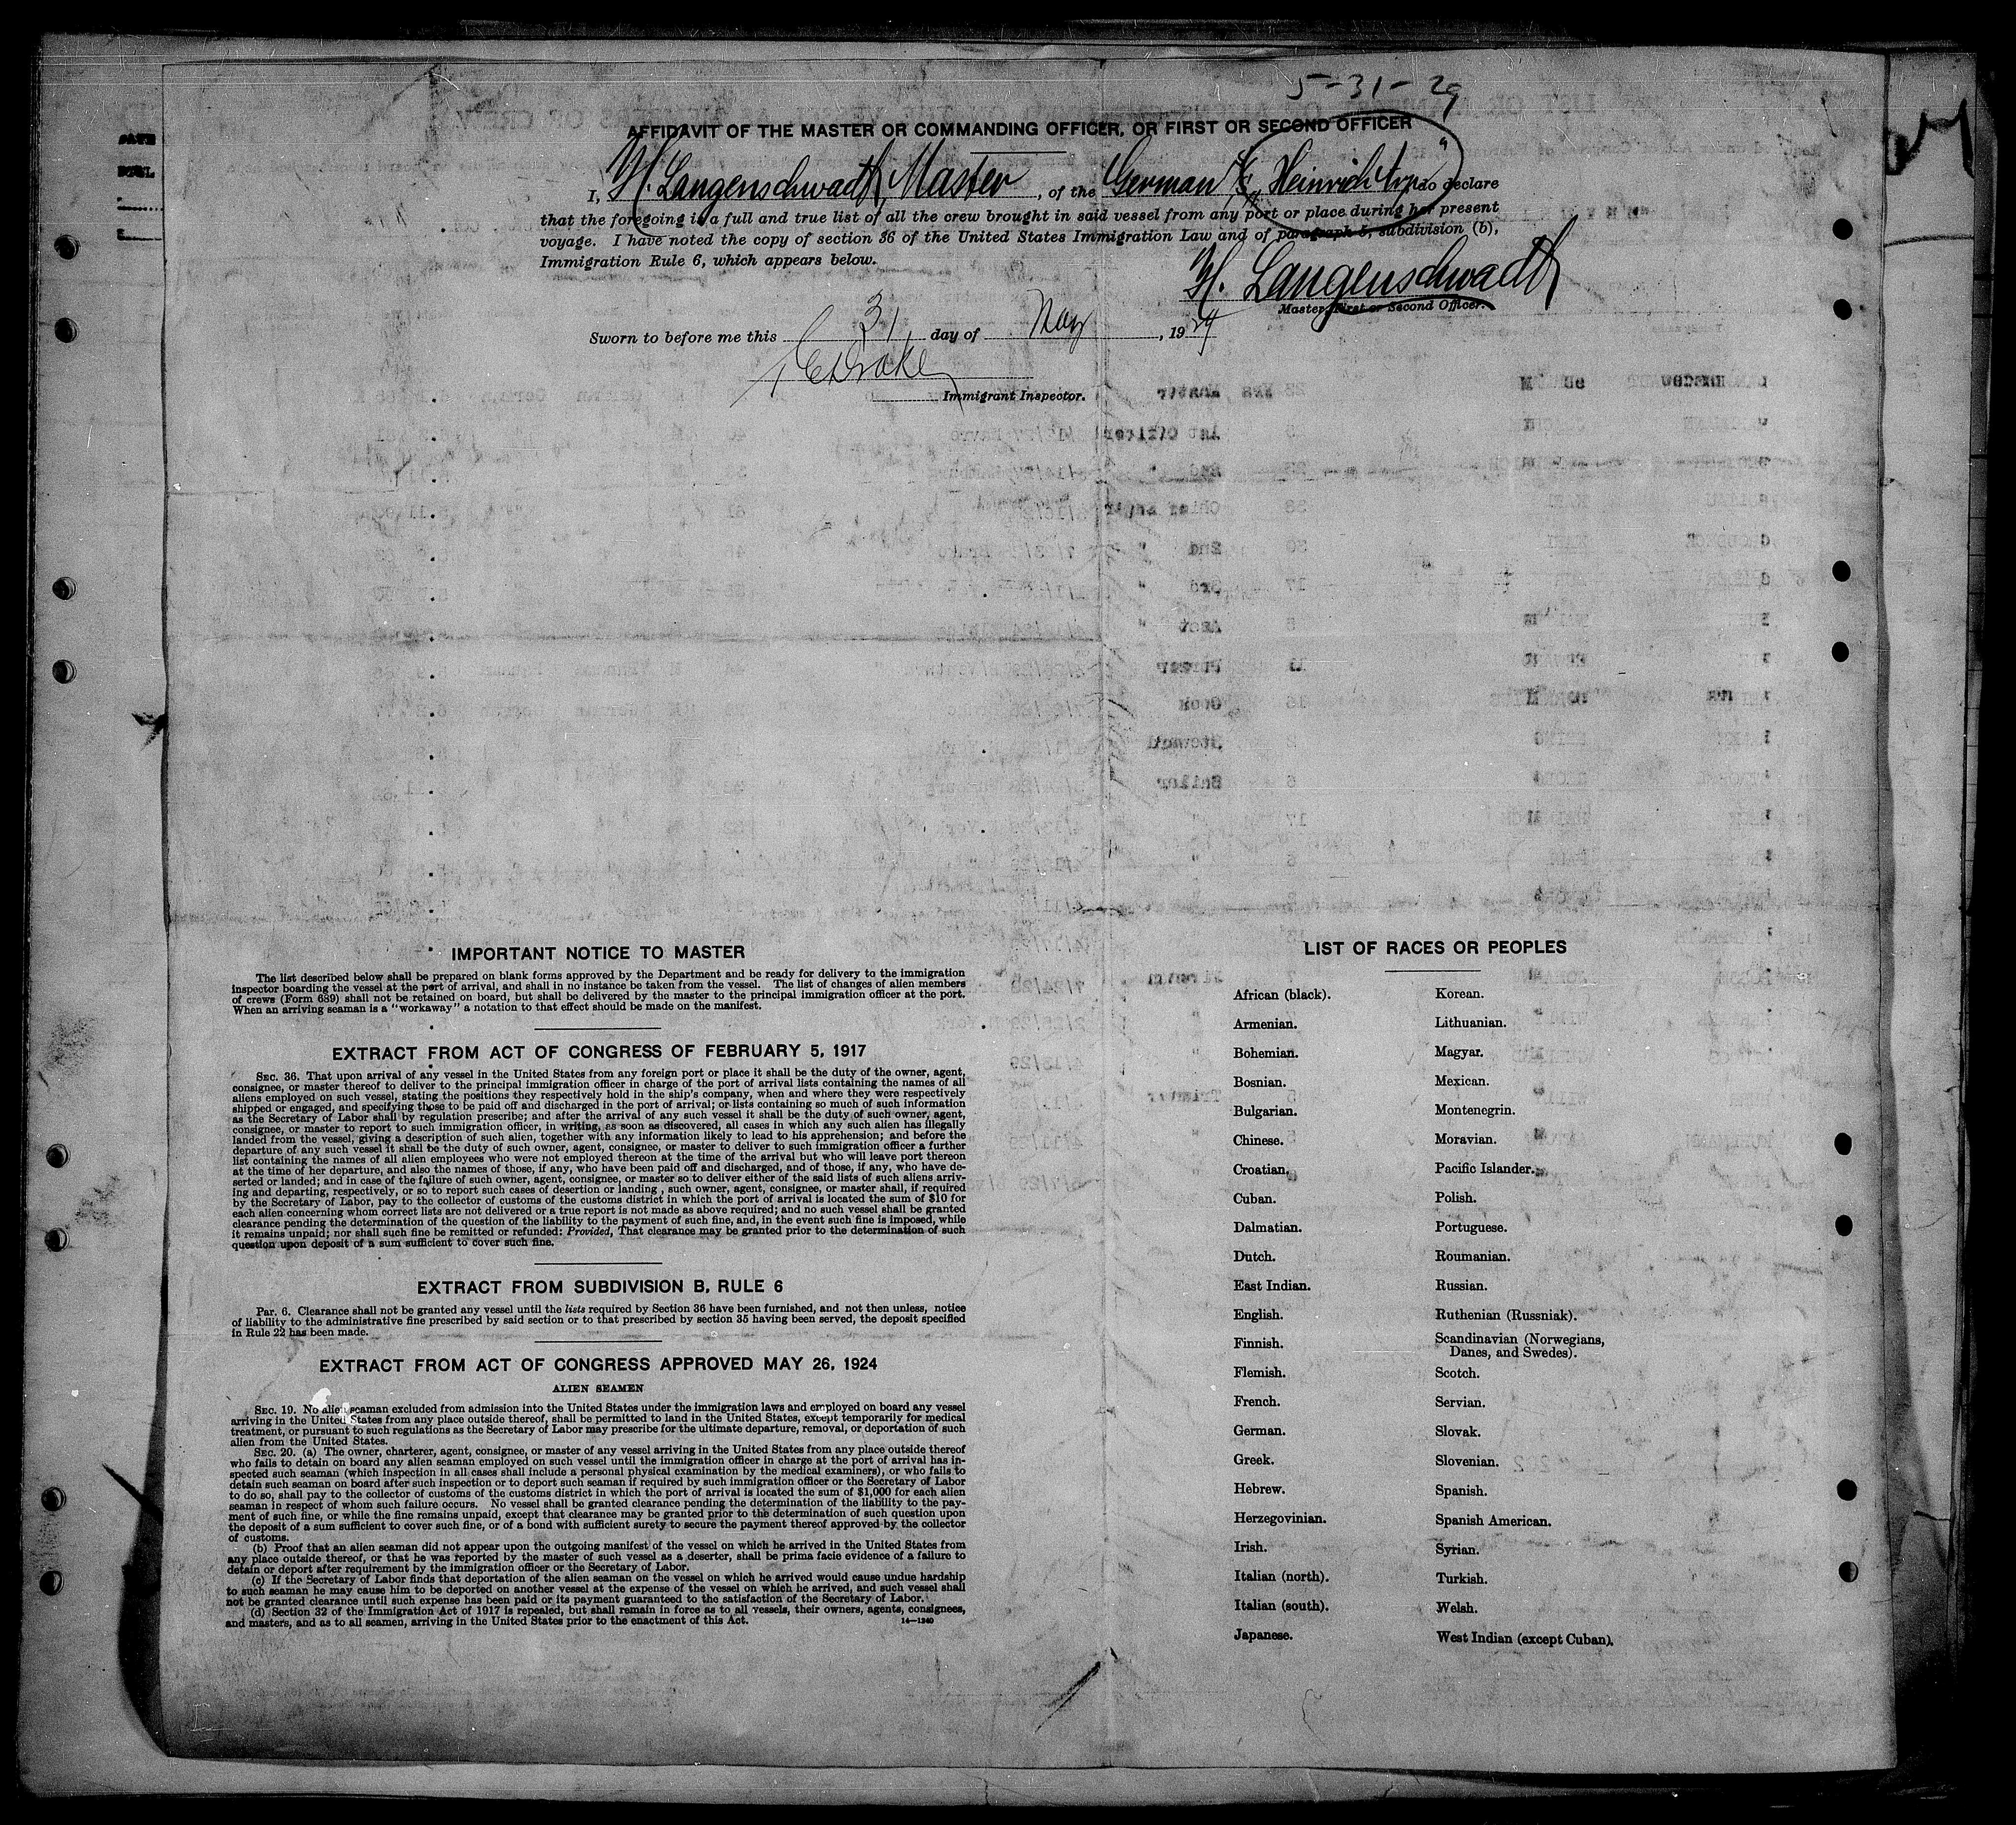 5-31-29
AFFIDAVIT OF THE MASTER OR COMMANDING OFFICER, OR FIRST OR SECOND OFFICER
I, H. Langenschwadt, Master, of the German Heinrich Arp do declare
that the foregoing is a full and true list of all the crew brought in said vessel from any port or place during her present
voyage. I have noted the copy of section 36 of the United States Immigration Law and of paragraph 5, subdivision (b),
Immigration Rule 6, which appears below.
H. Langenschwadt
Master, First or Second Officer.
Sworn to before me this 31, day of May, 1929
Drake
Immigrant Inspector.
IMPORTANT NOTICE TO MASTER
The list described below shall be prepared on blank forms approved by the Department and be ready for delivery to the immigration
inspector boarding the vessel at the port of arrival, and shall in no instance be taken from the vessel. The list of changes of alien members
of crews (Form 689) shall not be retained on board, but shall be delivered by the master to the principal immigration officer at the port.
When an arriving seaman is a "workaway" a notation to that effect should be made on the manifest.
EXTRACT FROM ACT OF CONGRESS OF FEBRUARY 5, 1917
SEC. 36. That upon arrival of any vessel in the United States from any foreign port or place it shall be the duty of the owner, agent,
consignee, or master thereof to deliver to the principal immigration officer in charge of the port of arrival lists containing the names of all
aliens employed on such vessel, stating the positions they respectively hold in the ship's company, when and where they were respectively
shipped or engaged, and specifying those to be paid off and discharged in the port of arrival; or lists containing so much of such information
as the Secretary of Labor shall by regulation prescribe; and after the arrival of any such vessel it shall be the duty of such owner, agent,
consignee, or master to report to such immigration officer, in writing, as soon as discovered, all cases in which any such alien has illegally
landed from the vessel, giving a description of such alien, together with any information likely to lead to his apprehension; and before the
departure of any such vessel it shall be the duty of such owner, agent, consignee, or master to deliver to such immigration officer a further
list containing the names of all alien employees who were not employed thereon at the time of the arrival but who will leave port thereon
at the time of her departure, and also the names of those, if any, who have been paid off and discharged, and of those, if any, who have de-
serted or landed; and in case of the failure of such owner, agent, consignee, or master so to deliver either of the said lists of such aliens arriv-
ing and departing, respectively, or so to report such cases of desertion or landing, such owner, agent, consignee, or master shall, if required
by the Secretary of Labor, pay to the collector of customs of the customs district in which the port of arrival is located the sum of $10 for
each alien concerning whom correct lists are not delivered or a true report is not made as above required; and no such vessel shall be granted
clearance pending the determination of the question of the liability to the payment of such fine, and, in the event such fine is imposed, while
it remains unpaid; nor shall such fine be remitted or refunded: Provided, That clearance may be granted prior to the determination of such
question upon deposit of a sum sufficient to cover such fine.
EXTRACT FROM SUBDIVISION B, RULE 6
Par. 6. Clearance shall not be granted any vessel until the lists required by Section 36 have been furnished, and not then unless, notice
of liability to the administrative fine prescribed by said section or to that prescribed by section 35 having been served, the deposit specified
in Rule 22 has been made.
EXTRACT FROM ACT OF CONGRESS APPROVED MAY 26, 1924
ALIEN SEAMEN
SEC. 19. No alien seaman excluded from admission into the United States under the immigration laws and employed on board any vessel
arriving in the United States from any place outside thereof, shall be permitted to land in the United States, except temporarily for medical
treatment, or pursuant to such regulations as the Secretary of Labor may prescribe for the ultimate departure, removal, or deportation of such
alien from the United States.
SEC. 20. (a) The owner, charterer, agent, consignee, or master of any vessel arriving in the United States from any place outside thereof
who fails to detain on board any alien seaman employed on such vessel until the immigration officer in charge at the port of arrival has in-
spected such seaman (which inspection in all cases shall include a personal physical examination by the medical examiners), or who fails to
detain such seaman on board after such inspection or to deport such seaman if required by such immigration officer or the Secretary of Labor
to do so, shall pay to the collector of customs of the customs district in which the port of arrival is located the sum of $1,000 for each alien
seaman in respect of whom such failure occurs. No vessel shall be granted clearance pending the determination of the liability to the pay-
ment of such fine, or while the fine remains unpaid, except that clearance may be granted prior to the determination of such question upon
the deposit of a sum sufficient to cover such fine, or of a bond with sufficient surety to secure the payment thereof approved by the collector
of customs.
(b) Proof that an alien seaman did not appear upon the outgoing manifest of the vessel on which he arrived in the United States from
any place outside thereof, or that he was reported by the master of such vessel as a deserter, shall be prima facie evidence of a failure to
detain or deport after requirement by the immigration officer or the Secretary of Labor.
(c) If the Secretary of Labor finds that deportation of the alien seaman on the vessel on which he arrived would cause undue hardship
to such seaman he may cause him to be deported on another vessel at the expense of the vessel on which he arrived, and such vessel shall
not be granted clearance until such expense has been paid or its payment guaranteed to the satisfaction of the Secretary of Labor.
(d) Section 32 of the Immigration Act of 1917 is repealed, but shall remain in force as to all vessels, their owners, agents, consignees,
and masters, and as to all seamen, arriving in the United States prior to the enactment of this Act.
14—1240
LIST OF RACES OR PEOPLES
African (black).
Armenian.
Bohemian.
Bosnian.
Bulgarian.
Chinese.
Croatian.
Cuban.
Dalmatian.
Dutch.
East Indian.
English.
Finnish.
Flemish.
French.
German.
Greek.
Hebrew.
Herzegovinian.
Irish.
Italian (north).
Italian (south).
Japanese.
Korean.
Lithuanian.
Magyar.
Mexican.
Montenegrin.
Moravian.
Pacific Islander.
Polish.
Portuguese.
Roumanian.
Russian.
Ruthenian (Russniak).
Scandinavian (Norwegians,
Danes, and Swedes).
Scotch.
Servian.
Slovak.
Slovenian.
Spanish.
Spanish American.
Syrian.
Turkish.
Welsh.
West Indian (except Cuban).